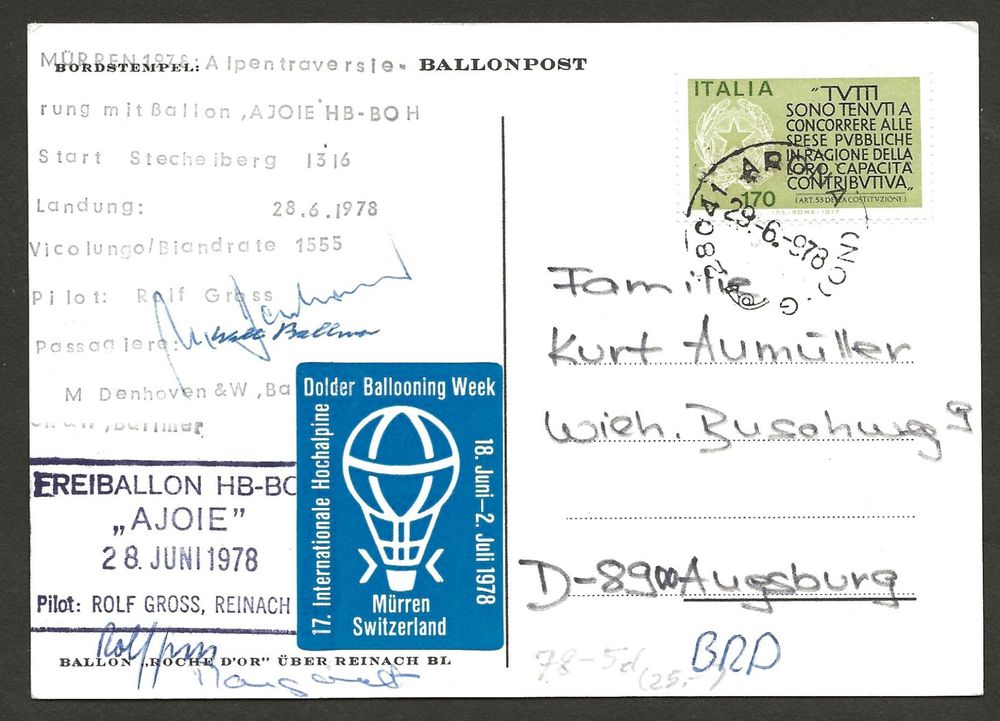 BORDSTEMPEL: BALLONPOST
MÜRREN 1978: Alpentraversie-
rung mit Ballon ‚AJOIE' HB-BOH
Start Stechelberg 1316
Landung: 28.6.1978
Vicolungo/Biandrate 1555
Pilot: Rolf Gross
Passagiere:
M Denhoven & W, Ba
FREIBALLON HB-BO
„AJOIE”
28. JUNI 1978
Pilot: ROLF GROSS, REINACH
17. Internationale Hochalpine
Dolder Ballooning Week
18. Juni–2. Juli 1978
Mürren
Switzerland
BALLON „ROCHE D'OR” ÜBER REINACH BL
ITALIA
„TVTTI
SONO TENVTI A
CONCORRERE ALLE
SPESE PVBBLICHE
IN RAGIONE DELLA
LORO CAPACITÀ
CONTRIBVTIVA„
(ART. 53 DELLA COSTITVZIONE)
170
I.P.S.-ROMA-1977
28041 ARONA (NO)
29.-6.-978
Familie
Kurt Aumüller
Wieh. Buschweg 9
D-8900 Augsburg
BRD
78-5d
(25.-)